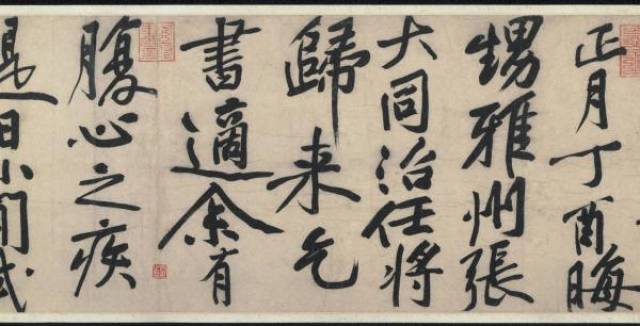 正月丁酉晦
甥雅州張
大同治任將
歸来乞
書適余有
腹心之疾
是日小閒試